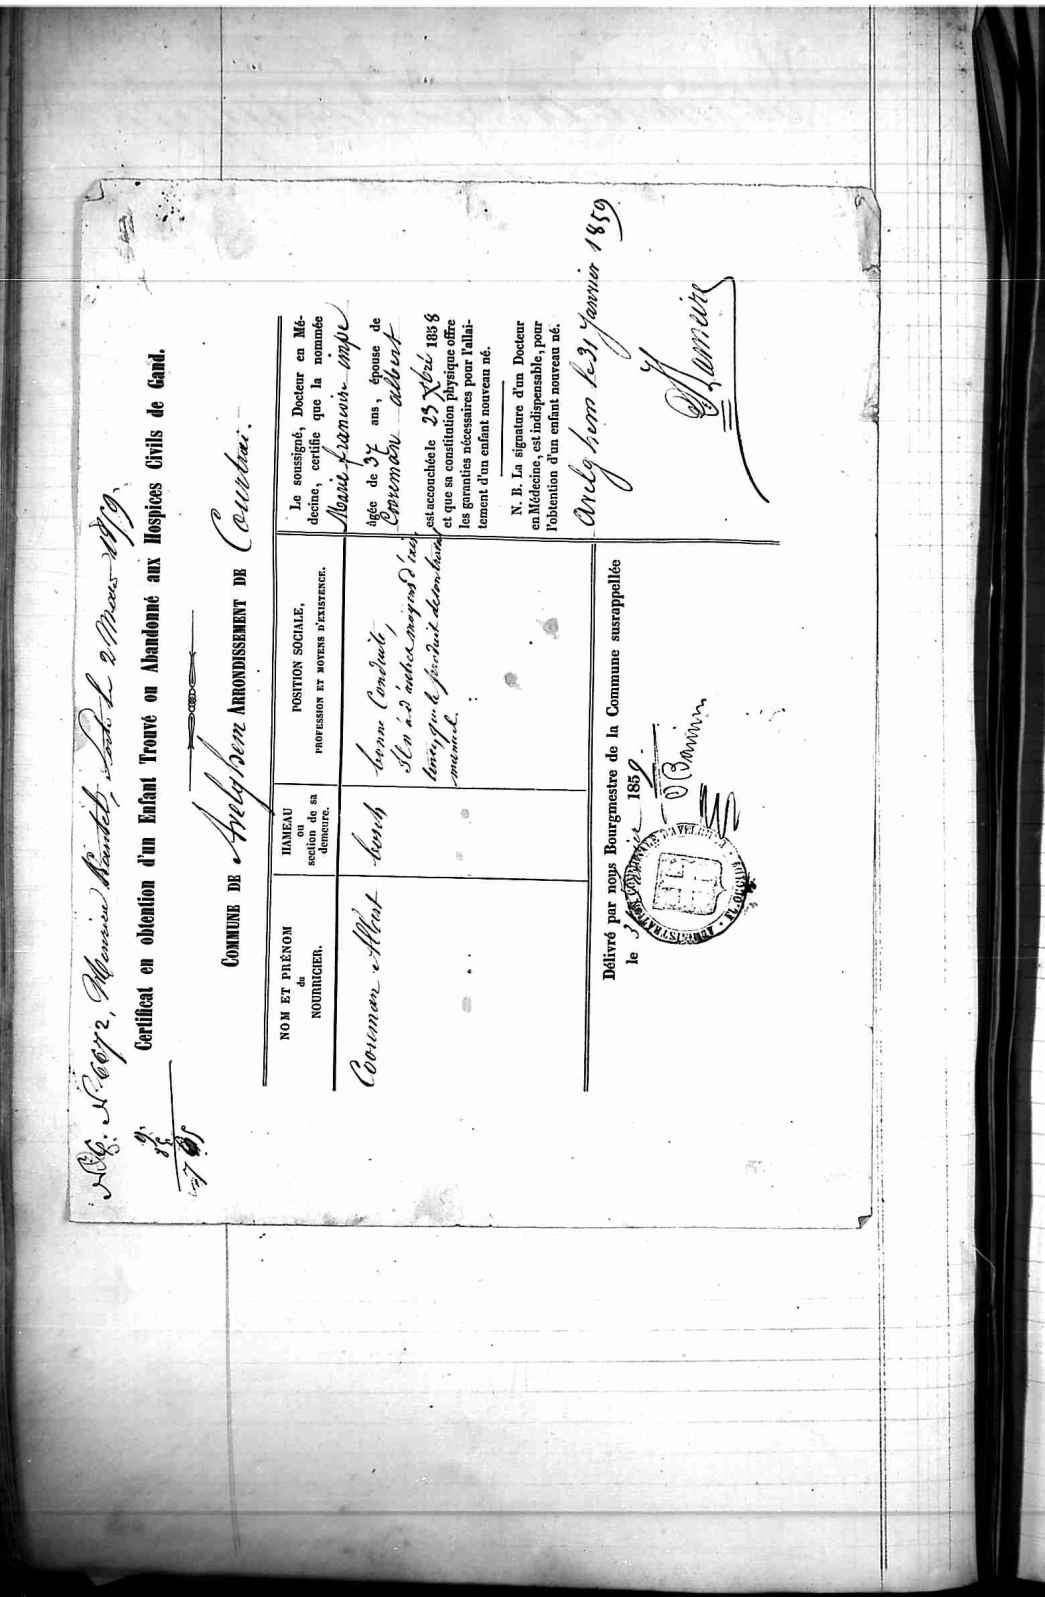 N° 6672,
Certificat en obtention d'un Enfant Trouvé ou Abandonné aux Hospices Civils de Gand.
COMMUNE DE Avelghem ARRONDISSEMENT DE Courtrai.
NOM ET PRÉNOM
du
NOURRICIER.
Cooreman Albert
HAMEAU
ou
section de sa
demeure.
bosch
POSITION SOCIALE,
PROFESSION ET MOYENS D'EXISTENCE.
bonne Conduite,
Il n'a d'autres moyens d'exis-
tence, que le produit de son travail
manuel.
Le soussigné, Docteur en Mé-
decine, certifie que la nommée
Marie francoise impe
âgée de 37 ans, épouse de
Cooreman albert
est accouchée le 23 Xbre 1858
et que sa constitution physique offre
les garanties nécessaires pour l'allai-
tement d'un enfant nouveau né.
N. B. La signature d'un Docteur
en Médecine, est indispensable, pour
l'obtention d'un enfant nouveau né.
Avelghem le 31 Janvier 1859
Délivré par nous Bourgmestre de la Commune susrappellée
le 31 Janvier 1859.